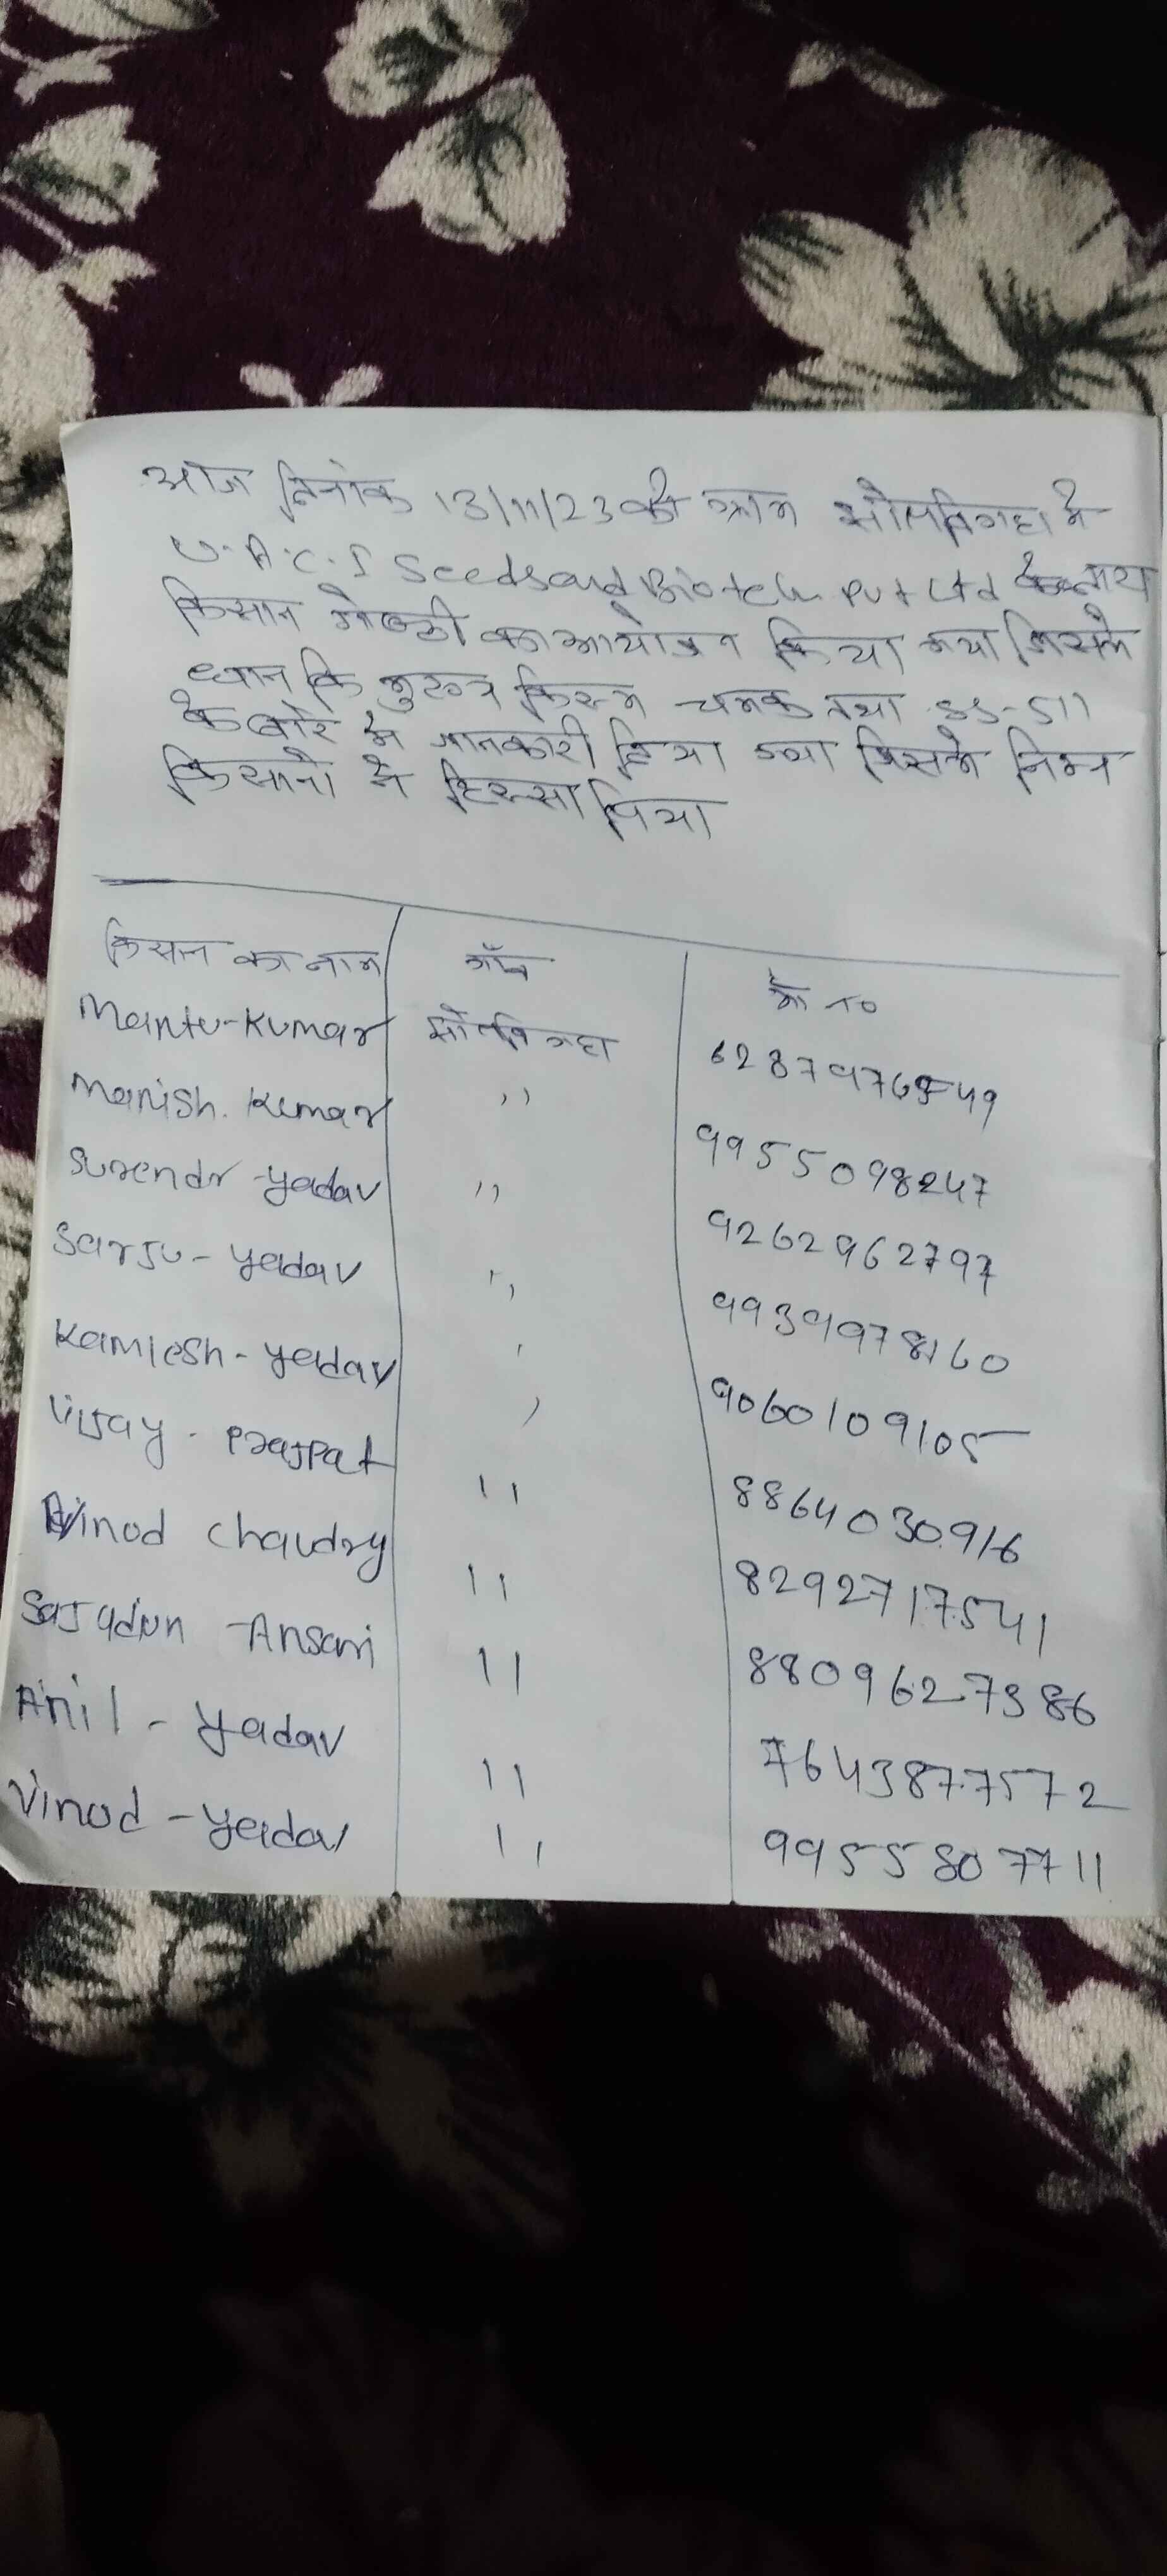 आज दिनांक 13/11/23 को ग्राम सोनबिगहा मे
U.A.C.I Seeds and Biotech Pvt Ltd के साथ
किसान गोष्ठी का आयोजन किया गया जिसमे
धान कि मुख्य किस्म चमक तथा SS-511
के बारे मे जानकारी दिया गया जिसमे निम्न
किसानो ने हिस्सा लिया
किसान का नाम गाँव मो no
Mantu-Kumar सोनबिगहा
Manish. Kumar ,, 9955098247
Surendr-yadav ,, 9262962797
Sarju-yadav ,, 9939978160
Kamlesh-yadav , 9060109105
Vijay-Prajpat , 8864030916
Vinod Chaudry 11 8292717541
Sajadun Ansari 11 8809627386
Anil-yadav 11 7643877572
Vinod-yadav 11 9955807711